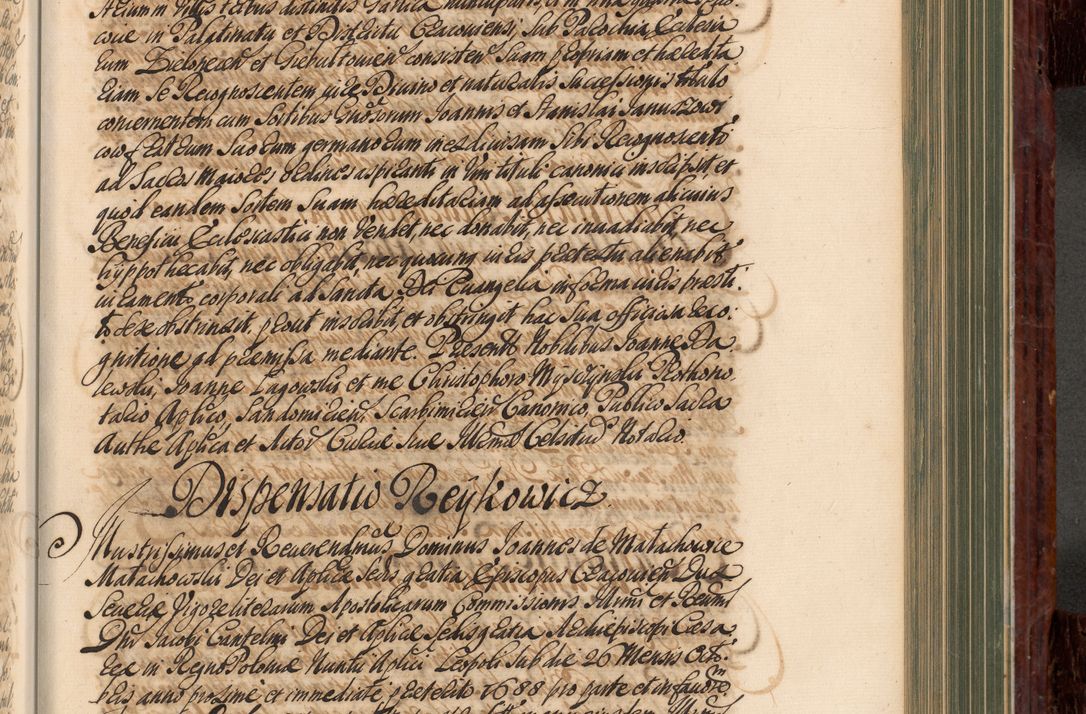 covie in Palatinatu et Districtu Cracoviensi, sub Parochia Ecclesia
rum Zielonecen et Giebultovien consisten suam propriam et haeredita
riam se Recognoscentem jure Divino et naturalis successionis titulo
concernentem cum sortibus Gnosorum Joannis et Stanislai Januszows
cow fratrum suorum germanorum inesdivisam sibi Recognoscenti
ad Sacros Maiores Ordines aspiranti in vim tituli canonici inscripsit, et
quod eandem sortem suam haereditariam ad assecutionem alicuius
Beneficii Ecclesiastici non vendet, nec donabit, nec invadiabit, nec
hyppothecabit, nec obligabit, nec quovung iuris praetextu alienabit
iuramento corporali ad Sancta Dei Evangelia in forma iuris praesti:
to sese obstrinxit, prout inscribit et obstringit hac sua officiosa reco:
gnitione ad praemissa mediante. Praesentt Nobilibus Joanne Da
lewski, Joanne Lagowski et me Christophoro Mysczynski Prothono
tario Aplico, Sandomirien, Scarbimirien Canonico, Publico Sacra
Authe Aplica et Actor Curiae suae Illrmae Celsitud Notario.
Dispensatio Reykowicz.
Illustrissimus et Reverendmus Dominus Joannes de Malachowice
Malachowski Dei et Aplicae Sedis gratia Episcopus Cracovien Dux
Severiae Vigore literarum Apostolicarum Commissionis Illrmi et Reumi
Dni Jacobi Cantelmi Dei et Aplicae Sedis gratia Archiepiscopi Caesa
reae in Regno Poloniae Nuntii Aplici Leopoli sub die 26 Mensis Octo
bris anno proxime et immediate praeterito 1688 pro parte et in favorem